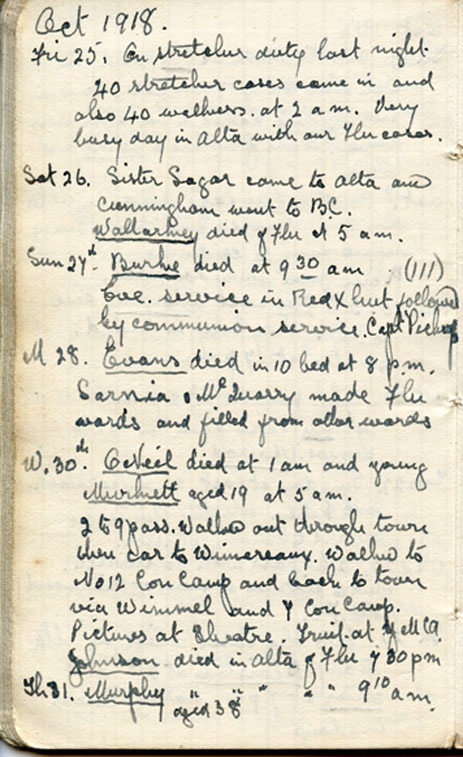 Oct 1918.
Fri 25. On stretcher duty last night.
40 stretcher cases came in and
also 40 walkers. at 2 a m. Very
busy day in Alta with our Flu cases.
Sat 26. Sister Sagar came to Alta and
Cunningham went to B.C.
Wallarney died of Flu at 5 am.
Sun 27th. Burke died at 9 30 am (111)
Eve. service in Red X hut followed
by communion service. Capt
M 28. Evans died in 10 bed at 8 p.m.
Sarnia & McQuarry made Flu
wards and filled from other wards
W. 30th. O'Neil died at 1 am and young
aged 19 at 5 am.
2 to 9 pass. Walked out through town
then car to Wimereaux. Walked to
No 12 Con Camp and back to town
via Wimmel and Y Con Camp.
Pictures at Theatre. Fruit at Y M C A.
Johnson died in Alta of Flu 7 30 pm
Th 31. Murphy " " " " " 9 10 am.
aged 38